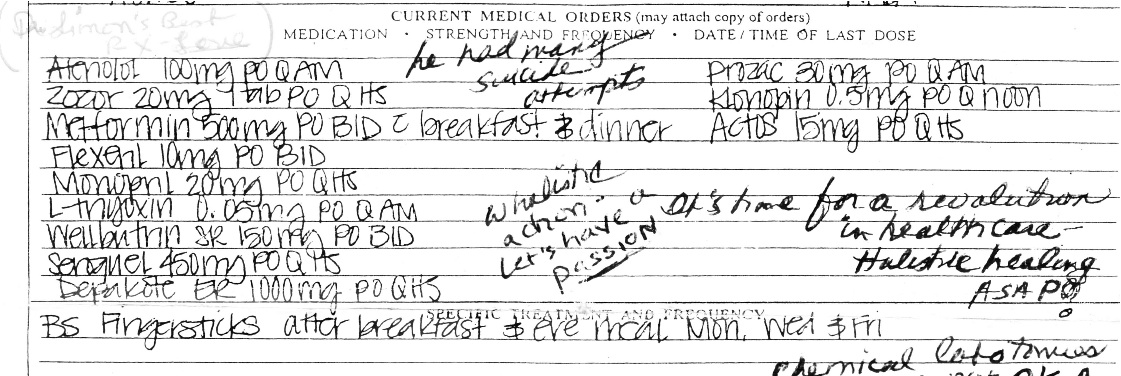 Dr Simon's Best
Rx - Love
CURRENT MEDICAL ORDERS (may attach copy of orders)
MEDICATION • STRENGTH AND FREQUENCY • DATE / TIME OF LAST DOSE
he had many
suicide
attempts
Atenolol 100mg PO Q AM
Prozac 30mg PO Q AM
Zocor 20mg 1 tab PO Q HS
Klonopin 0.5mg PO Q noon
Metformin 500mg PO BID c breakfast & dinner
Actos 15mg PO QHS
Flexeril 10mg PO BID
Monopril 20mg PO QHS
0.05mg PO Q AM
Wellbutrin SR 150mg PO BID
Seroquel 450mg PO Q HS
Depakote ER 1000mg PO QHS
wholistic
action -
Let's have a
passion
It's time for a revolution
in health care -
Holistic healing
ASAP
SPECIFIC TREATMENT AND FREQUENCY
BS Fingersticks after breakfast & eve meal Mon, Wed & Fri
chemical lobotomies